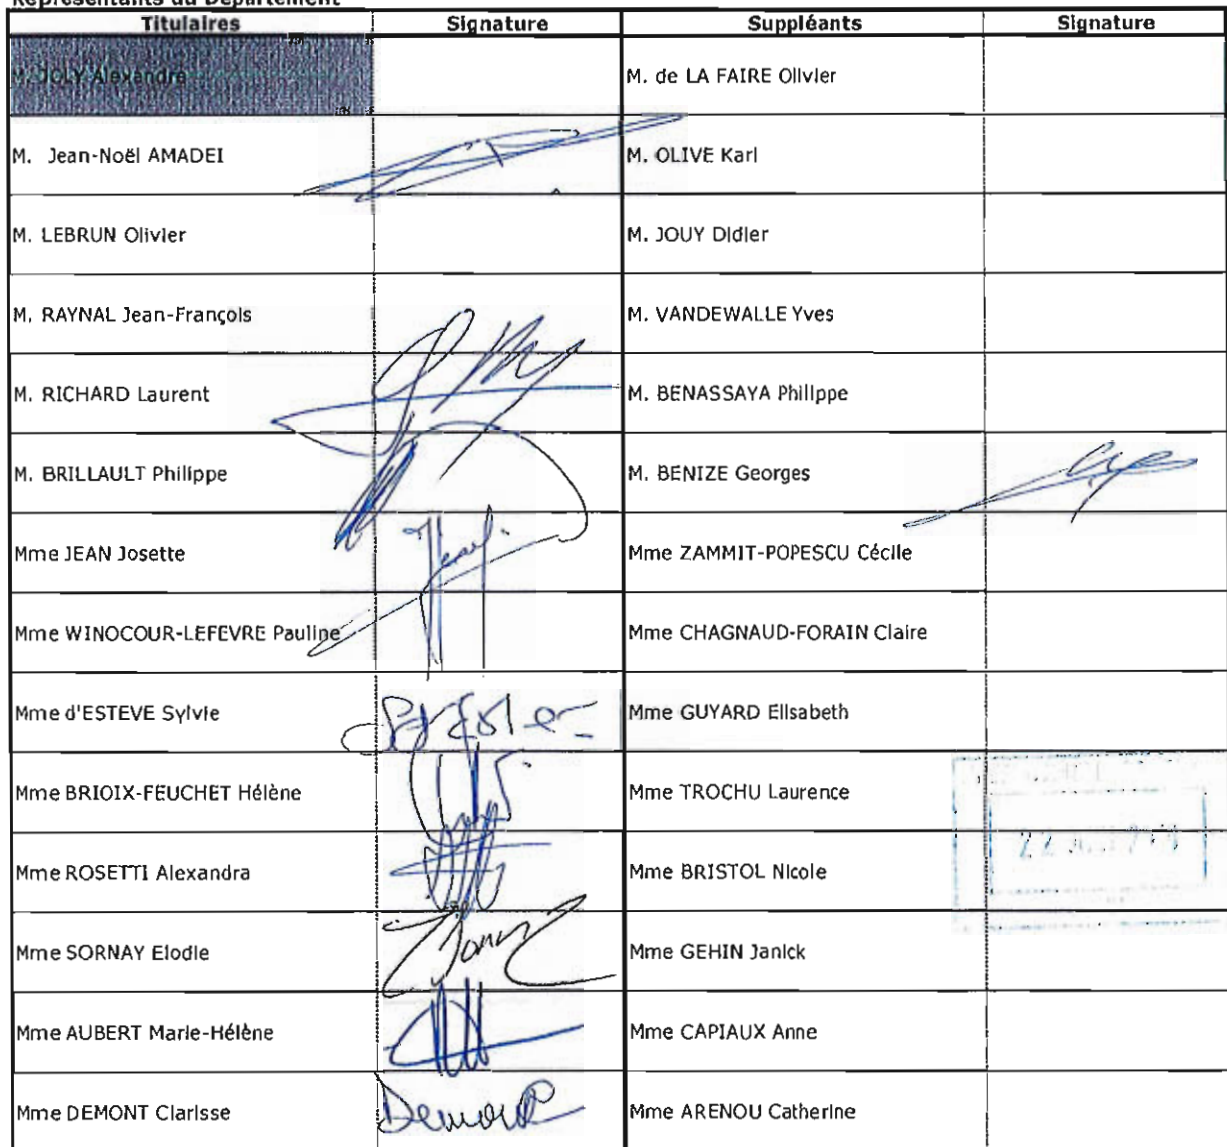 Représentants du Département
Titulaires Signature Suppléants Signature
M. JOLY Alexandre M. de LA FAIRE Olivier
M. Jean-Noël AMADEI M. OLIVE Karl
M. LEBRUN Olivier M. JOUY Didier
M. RAYNAL Jean-François M. VANDEWALLE Yves
M. RICHARD Laurent M. BENASSAYA Philippe
M. BRILLAULT Philippe M. BENIZE Georges
Mme JEAN Josette Mme ZAMMIT-POPESCU Cécile
Mme WINOCOUR-LEFEVRE Pauline Mme CHAGNAUD-FORAIN Claire
Mme d'ESTEVE Sylvie Mme GUYARD Elisabeth
Mme BRIOIX-FEUCHET Hélène Mme TROCHU Laurence
Mme ROSETTI Alexandra Mme BRISTOL Nicole
Mme SORNAY Elodie Mme GEHIN Janick
Mme AUBERT Marie-Hélène Mme CAPIAUX Anne
Mme DEMONT Clarisse Demont Mme ARENOU Catherine